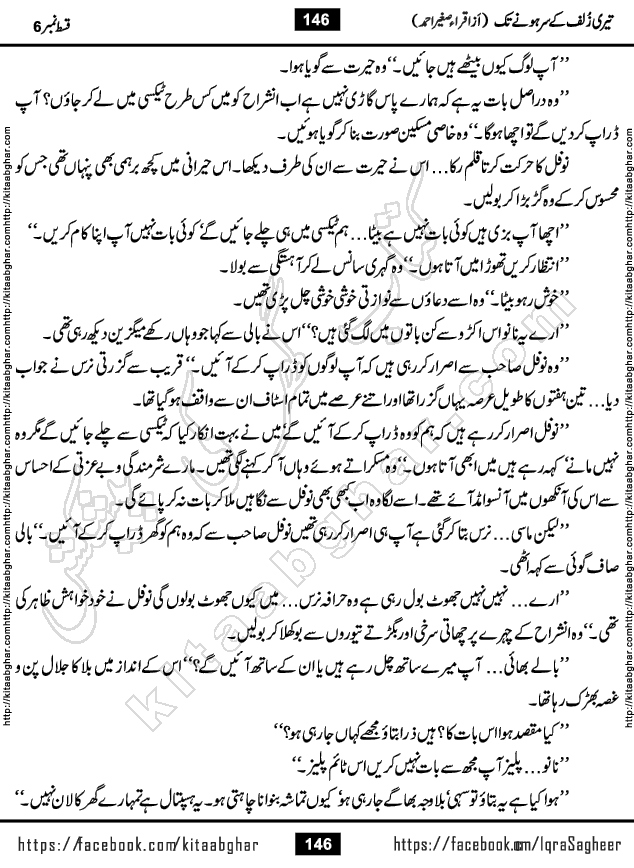 تیری زُلف کے سر ہونے تک (از اقراء صغیر احمد) 146 قسط نمبر 6
’’آپ لوگ کیوں بیٹھے ہیں جائیں۔‘‘ وہ حیرت سے گویا ہوا۔
’’وہ دراصل بات یہ ہے کہ ہمارے پاس گاڑی نہیں ہے اب انشراح کو میں کس طرح ٹیکسی میں لے کر جاؤں؟ آپ
ڈراپ کردیں گے تو اچھا ہوگا۔‘‘ وہ خاصی مسکین صورت بنا کر گویا ہوئیں۔
نوفل کا حرکت کرتا قلم رکا… اس نے حیرت سے ان کی طرف دیکھا۔ اس حیرانی میں کچھ برہمی بھی پنہاں تھی جس کو
محسوس کرکے وہ گڑبڑا کر بولیں۔
’’اچھا آپ بزی ہیں کوئی بات نہیں ہے بیٹا… ہم ٹیکسی میں ہی چلے جائیں گے‘ کوئی بات نہیں آپ اپنا کام کریں۔‘‘
’’انتظار کریں تھوڑا میں آتا ہوں۔‘‘ وہ گہری سانس لے کر آہستگی سے بولا۔
’’خوش رہو بیٹا۔‘‘ وہ اسے دعاؤں سے نوازتی خوشی خوشی چل پڑی تھیں۔
’’ارے یہ نانو اس اکڑو سے کن باتوں میں لگ گئی ہیں؟‘‘ اس نے بالی سے کہا جو وہاں رکھے میگزین دیکھ رہی تھی۔
’’وہ نوفل صاحب سے اصرار کر رہی ہیں کہ آپ لوگوں کو ڈراپ کرکے آئیں۔‘‘ قریب سے گزرتی نرس نے جواب
دیا… تین ہفتوں کا طویل عرصہ یہاں گزرا تھا اور اتنے عرصے میں تمام اسٹاف ان سے واقف ہوگیا تھا۔
’’نوفل اصرار کر رہے ہیں کہ ہم کو وہ ڈراپ کرکے آئیں گے‘ میں نے بہت انکار کیا کہ ٹیکسی سے چلے جائیں گے مگر وہ
نہیں مانے‘ کہہ رہے ہیں میں ابھی آتا ہوں۔‘‘ وہ مسکراتے ہوئے وہاں آکر کہنے لگی تھیں۔ مارے شرمندگی و بے عزتی کے احساس
سے اس کی آنکھوں میں آنسو امڈ آئے تھے۔ اسے لگا وہ اب کبھی بھی نوفل سے نگاہیں ملا کر بات نہ کر پائے گی۔
’’لیکن ماسی… نرس بتا کر گئی ہے آپ ہی اصرار کر رہی تھیں نوفل صاحب سے کہ وہ ہم کو گھر ڈراپ کرکے آئیں۔‘‘ بالی
صاف گوئی سے کہہ اٹھی۔
’’ارے… نہیں نہیں جھوٹ بول رہی ہے وہ حرافہ نرس… میں کیوں جھوٹ بولوں گی نوفل نے خود خواہش ظاہر کی
تھی۔‘‘ وہ انشراح کے چہرے پر چھاتی سرخی اور بگڑتے تیوروں سے بوکھلا کر بولیں۔
’’بالے بھائی… آپ میرے ساتھ چل رہے ہیں یا ان کے ساتھ آئیں گے؟‘‘ اس کے انداز میں بلا کا جلال پن و
غصہ بھڑک رہا تھا۔
’’کیا مقصد ہوا اس بات کا؟ ہیں ذرا بتاؤ مجھے کہاں جا رہی ہو؟‘‘
’’نانو… پلیز آپ مجھ سے بات نہیں کریں اس ٹائم پلیز۔‘‘
’’ہوا کیا ہے یہ بتاؤ تو سہی‘ بلاوجہ بھاگے جا رہی ہو‘ کیوں تماشہ بنوانا چاہتی ہو۔ یہ ہسپتال ہے تمہارے گھر کا لان نہیں۔‘‘
https://facebook.com/kitaabghar 146 https://facebook.com/IqraSagheer
http://kitaabghar.com
کتاب گھر کی پیشکش
kitaabghar.com